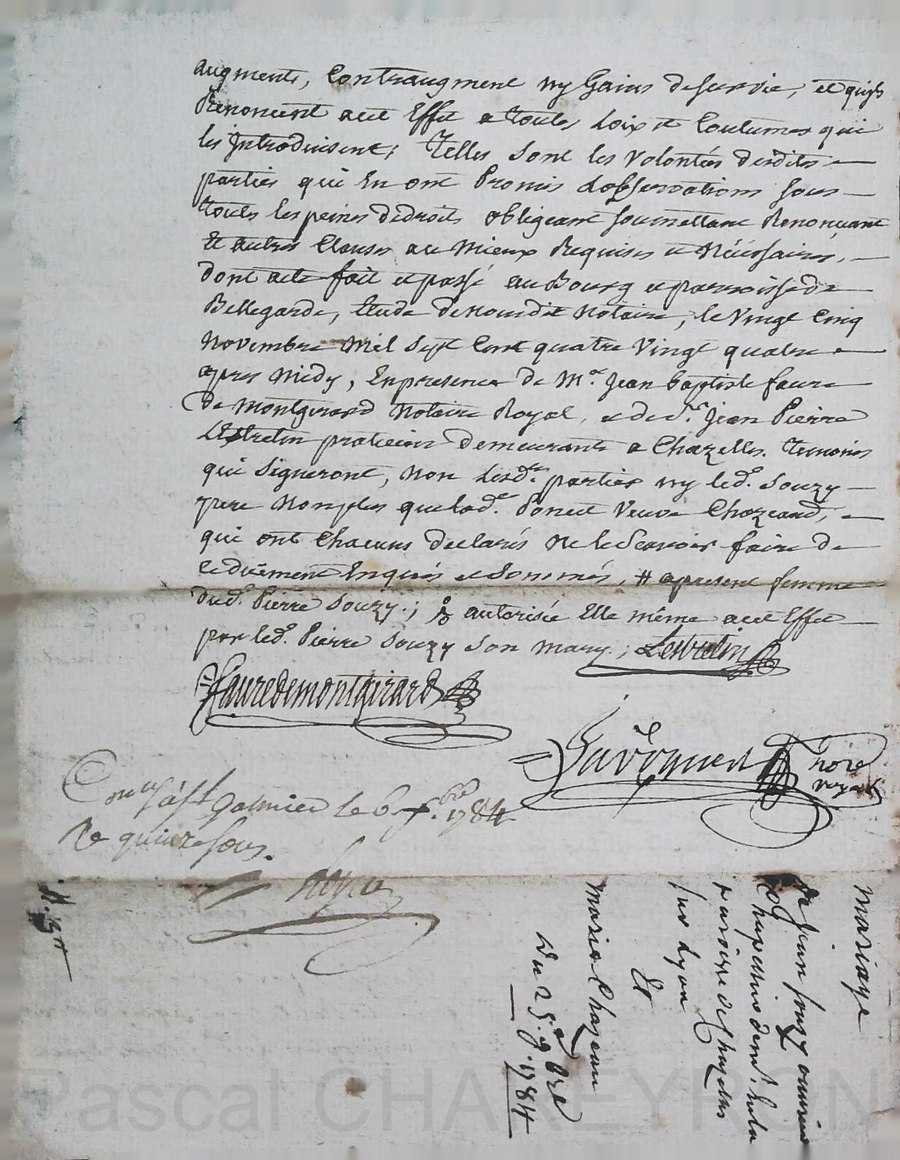 augments, Contraugment ny Gains desurvie, et quils
Renoncent acet Effet a toutes Loix et Coutumes qui
les Introduisent; Telles sont les volontés desdites
parties qui En ont Promis Lobservations sous
toutes les peines dedroits obligeant soumettant Renonçant
Et autres Clauses au Mieux Requises et Nécéssaires,
dont acte fait et passé au Bourg et parroisse de
Bellegarde, Etude de Nousdit Notaire, le Vingt Cinq
Novembre Mil Sept Cent quatre Vingt quatre
apres Midy, Enpresence de Mr. Jean Baptiste faure
de Montgirard Notaire Royal, et de Sr. Jean Pierre
Lestrelin praticien demeurants a Chazelles. temoins
qui Signeront, Non Lesdt. parties ny led. Souzy
pere Nonplus quelad. Poncet Veuve Chazeaud,
qui ont Chacuns declarés Ne le Scavoir faire de
ce düement Enquis et Sommés, # apresent femme
dud. Pierre Souzy; & autorisée Elle même acet Effet
par led. Pierre Souzy Son mary; Lestrelin
Fauredemontgirard
Notre
royal
Con.lle à St Galmier le 6 Xbre 1784
Re quinze sous.
mariage
de jean souzy ouvrier
Chapellier demt. en la
paroisse de Chazelles
sur Lyon
Et
Marie Chazeau
Du 25 9bre 1784
Pascal CHAREYRON